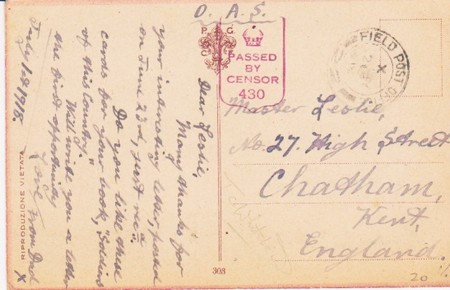 O. A. S.
PASSED
BY
CENSOR
430
FIELD POST OF
Dear Leslie,
Many thanks for
your interesting letter, posted
on June 23rd, just rec'd.
Do you like these
cards for your book, "Soldiers
of this Country".
Will write you a letter
the first opportunity
Love from Dad
X
July 1st 1918.
Master Leslie,
No. 27. High Street
Chatham,
Kent,
England.
RIPRODUZIONE VIETATA
303
20